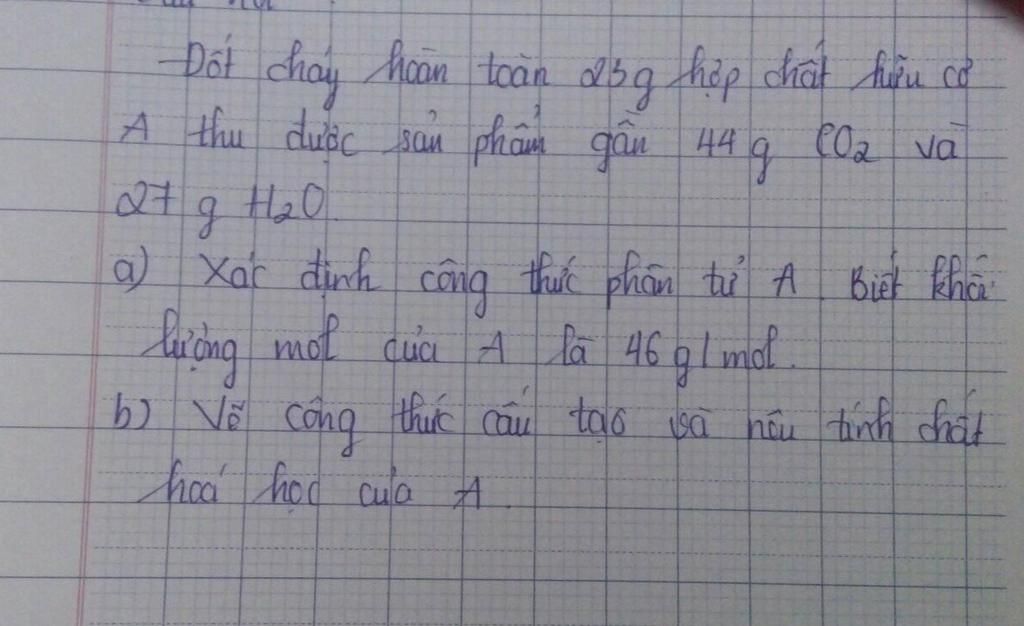 Đốt cháy hoàn toàn 23g hợp chất hữu cơ
A thu được sản phẩm gần 44 g CO2 và
27 g H2O.
a) Xác định công thức phân tử A. Biết khối
lượng mol của A là 46 g/mol.
b) Vẽ công thức cấu tạo và nêu tính chất
hoá học của A.